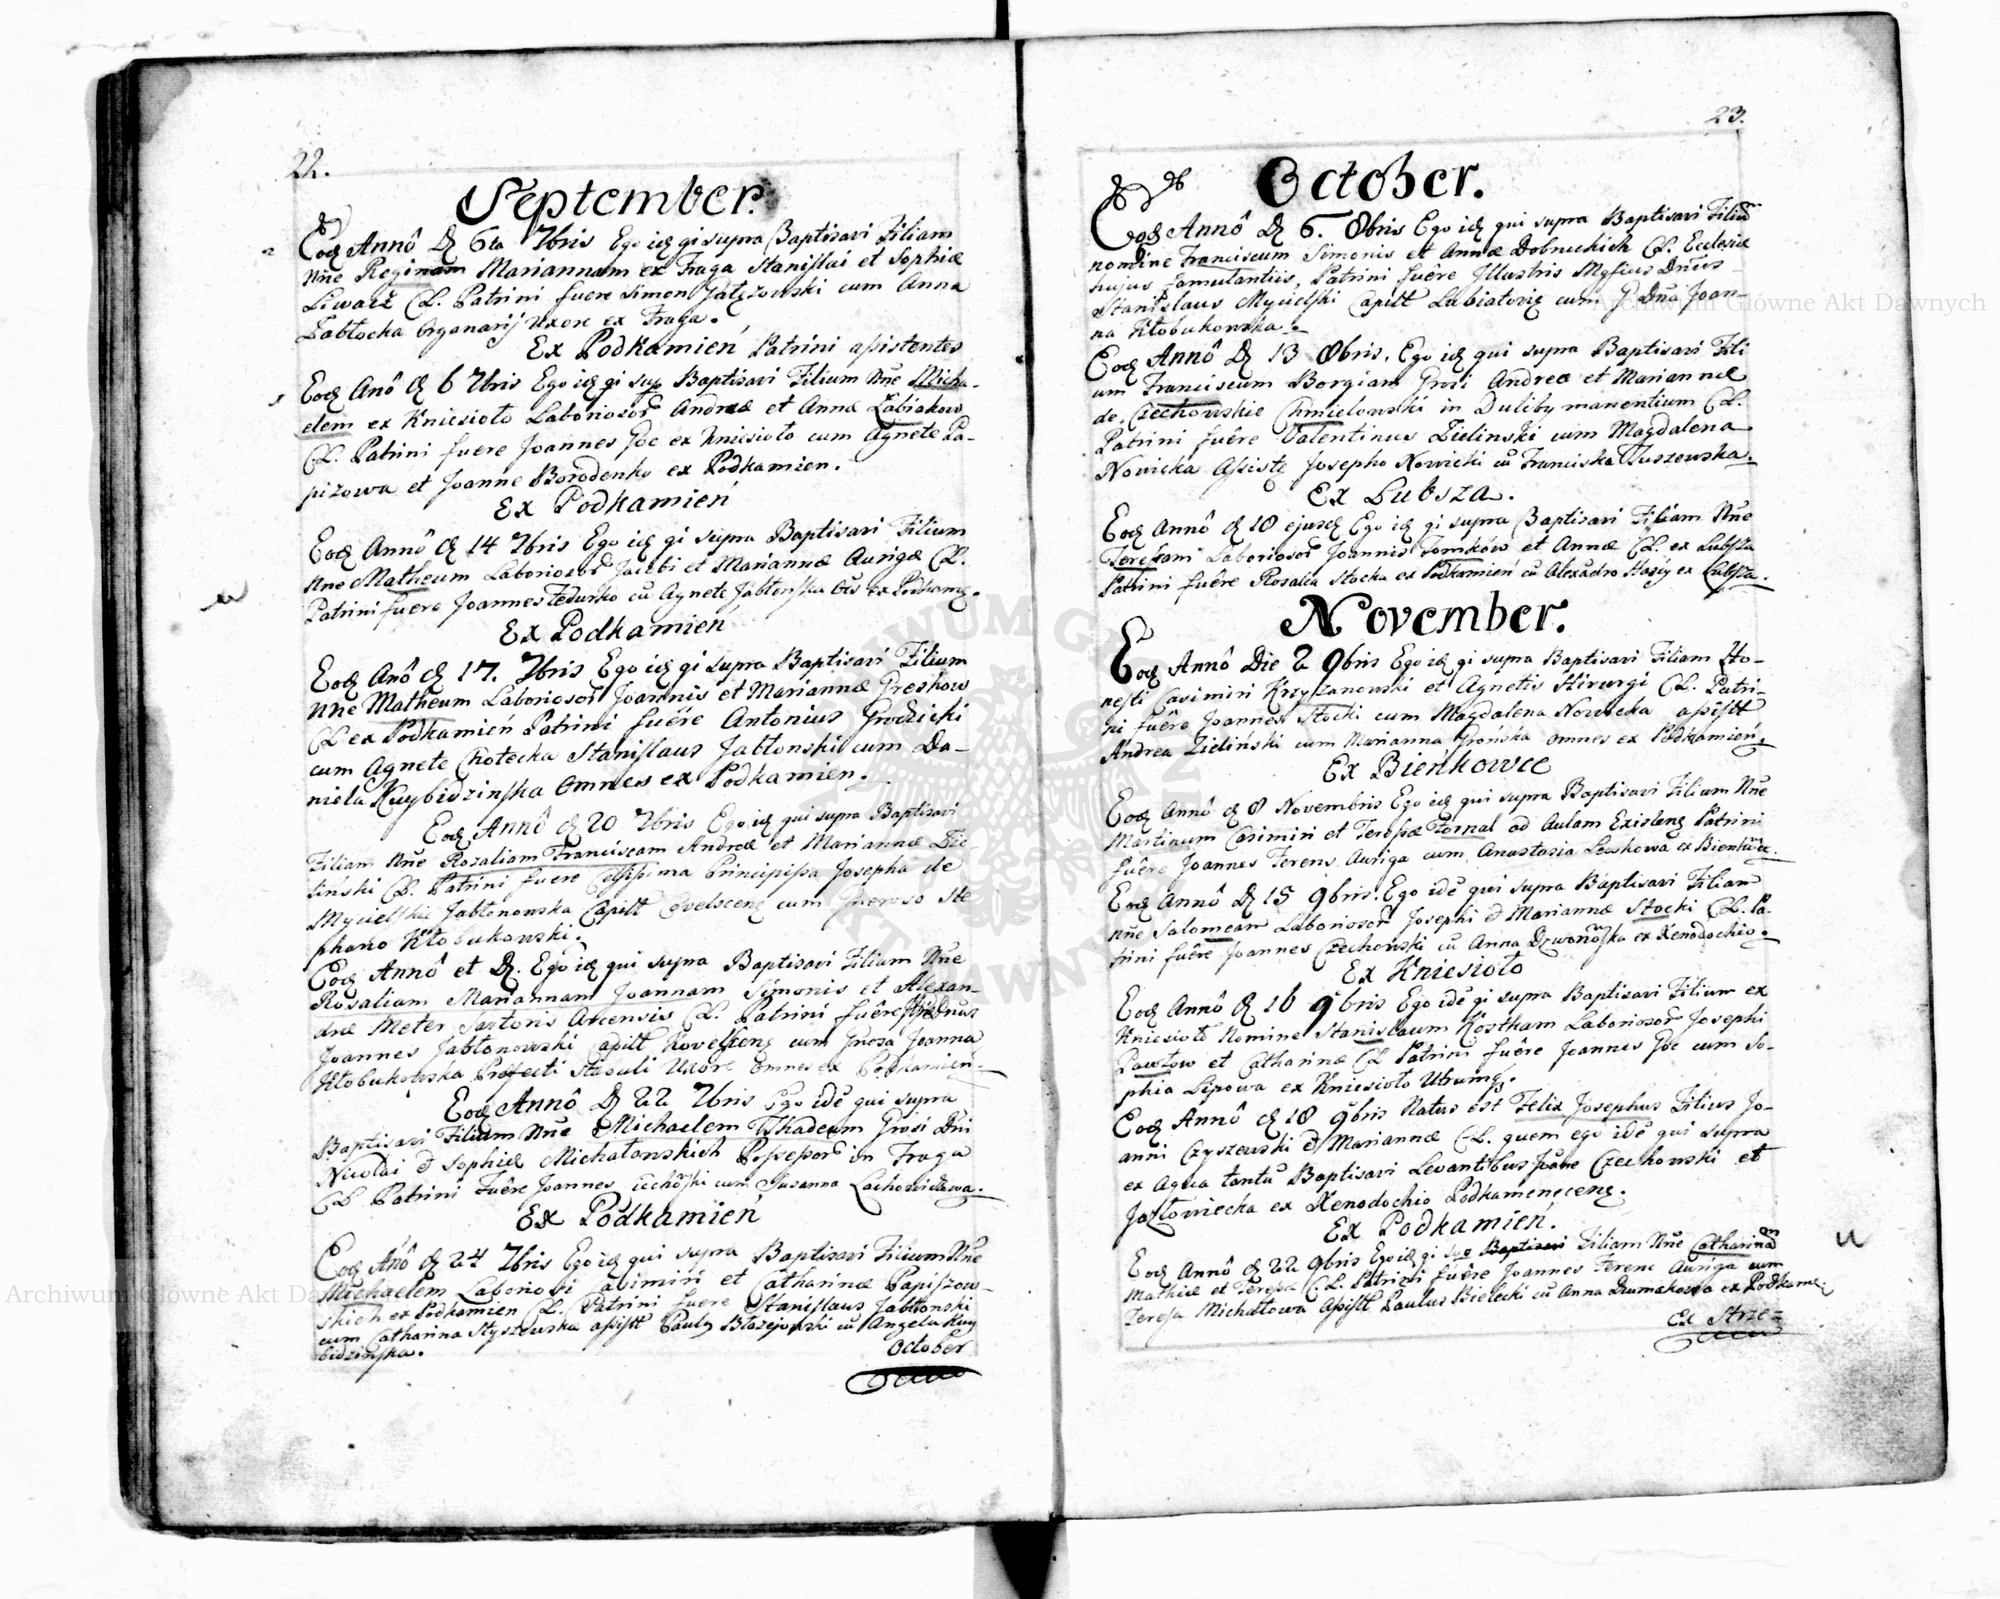 22.
September.
Eod Annô D 6ta 7bris Ego id qi supra Baptisavi Filiam
Nne Reginam Mariannam ex Fraga Stanislai et Sophiæ
CL. Patrini fuere Simon cum Anna
Zabłocka Organarij Uxore ex Fraga.
Ex Podkamień Patrini assistentes
Eod Anô d 6 7bris Ego id qi sup Baptisavi Filium Nne Micha-
elem ex Kniesioło Laboriosor Andreæ et Annæ
CL. Patrini fuere Joannes ex Kniesioło cum Agnete Pa-
pizowa et Joanne Borodenko ex Podkamien.
Ex Podkamień
Eod Annô d 14 7bris Ego id qi supra Baptisavi Filium
Nne Matheum Laboriosor Jacobi et Mariannæ Aurigæ CL.
Patrini fuere Joannes Fedurko cu Agnete Jabłonska ex Podkame.
Ex Podkamień
Eod Anô d 17. 7bris Ego id qi supra Baptisavi Filium
Nne Matheum Laboriosor Joannis et Mariannæ Greskow
CL ex Podkamień Patrini fuêre Antonius Grodzicki
cum Agnete Chotecka Stanislaus Jabłonski cum Da-
niela Kuybidzinska omnes ex Podkamien.
Eod Annô d 20 7bris Ego id qui supra Baptisavi
Filiam Nne Rozaliam Franciscam Andreæ et Mariannæ Zie-
liński CL. Patrini fuere Celsissima Principissa Josepha de
Mycielskie Jabłonowska Capitt cum Generoso Ste
phano Kłobukowski.
Eod Annô et D. Ego id qui supra Baptisavi Filiam Nne
Rosaliam Mariannam Joannam Simonis et Alexan-
dræ Meter Sartoris Arcensis CL. Patrini fuêre
Joannes Jabłonowski Capitt cum Gnosa Joanna
Kłobukowska Præfecti Stabuli Uxore omnes ex Podkamień.
Eod Annô D 22 7bris Ego ide qui supra
Baptisavi Filium Nne Michaelem Thadeum Gnosi Dni
Nicolai & Sophiæ Michałowskich Possessor in Fraga
CL Patrini Fuêre Joannes cum Susanna
Ex Podkamień
Eod Anô d 24 7bris Ego id qui supra Baptisavi Filium Nne
Michaelem Laboriosi Casimiri et Catharinæ Papiszow-
skich ex Podkamien CL. Patrini fuere Stanislaus Jabłonski
cum Catharina Styszewska assistt Pauly Błazejowski cu Angela Kuy
bidzinska.
October
23.
October.
Eod Annô D 6. 8bris Ego id qui supra Baptisavi Filiu
nomine Franciscum Simonis et Annæ Dobruckich CL. Ecclesiæ
hujus famulantiis, Patrini fuêre Illustris Mgficus Dnus
Stanislaus Mycielski Capitt Lubiatovię cum G Dna Joan-
na Kłobukowska.
Eod Annô D 13 8bris. Ego id qui supra Baptisavi Fili
um Franciscum Borgiam Gnosi Andreæ et Mariannæ
de Czechowskie Chmielowski in Duliby manentium CL.
Patrini fuêre Valentinus Zielinski cum Magdalena
Nowicka Assiste Josepho Nowicki cu Franciska Tuszewska.
Ex Lubsza.
Eod Annô d 18 ejusd Ego id qi supra Baptisavi Filiam Nne
Teressam Laboriosor Joannis Tomków et Annæ CL. ex Lubsza
Patrini fuêre Rosalia Stocka ex Podkamień cu Alexadro ex Lubsza.
November.
Eod Annô Die 2 9bris Ego id qi supra Baptisavi Filiam Ho-
nesti Casimiri Krzyzanowski et Agnetis Hirurgi CL. Patri-
ni fuêre Joannes Stocki cum Magdalena Nowicka assistt
Andrea Zieliński cum Marianna Grońska omnes ex Podkamień.
Ex Bieńkowce
Eod Annô d 8 Novembris Ego id qui supra Baptisavi Filium Nne
Martinum Casimiri et Teressæ Fornal ad Aulam Existens Patrini
fuêre Joannes Ferens Auriga cum Anastasia Lewkowa ex Bienkowce.
Eod Annô D 15 9bris. Ego ide qui supra Baptisavi Filiam
Nne Salomeam Laboriosor Josephi & Mariannæ Stocki CL. Pa-
trini fuêre Joannes Czechowski cu Anna Dzwonoska ex Xenodochio.
Ex Kniesioło
Eod Annô d 16 9bris Ego ide qi supra Baptisavi Filium ex
Kniesioło Nomine Stanislaum Kostkam Laboriosor Josephi
Pawłow et Catharinæ CL Patrini fuêre Joannes cum So-
phia Lipowa ex Kniesioło Utrumq.
Eod Annô d 18 9bris Natus est Felix Josephus Filius Jo-
anni Czyszewski & Mariannæ CL. quem ego ide qui supra
ex Aqua tantu Baptisavi Levantibus Joane Czechowski et
Jazłowiecka ex Xenodochio Podkameneceng.
Ex Podkamień.
Eod Annô d 22 9bris Ego id qi sup Baptisavi Filiam Nne Catharina
Mathiæ et Teressæ CL. Patrini fuêre Joannes Ferenc Auriga cum
Teresa Michałowa Assistt Paulus Bielecki cu Anna Rumakowa ex Podkame.
Ex Strze-
Archiwum Główne Akt Dawnych
Archiwum Główne Akt Dawnych